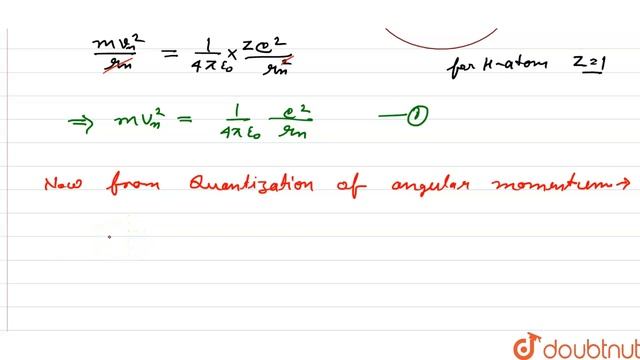 mvn²/rn = 1/4πε₀ × Ze²/rn²
for H-atom Z=1
⇒ mvn² = 1/4πε₀ e²/rn —①
Now from Quantization of angular momentum→
doubtnut